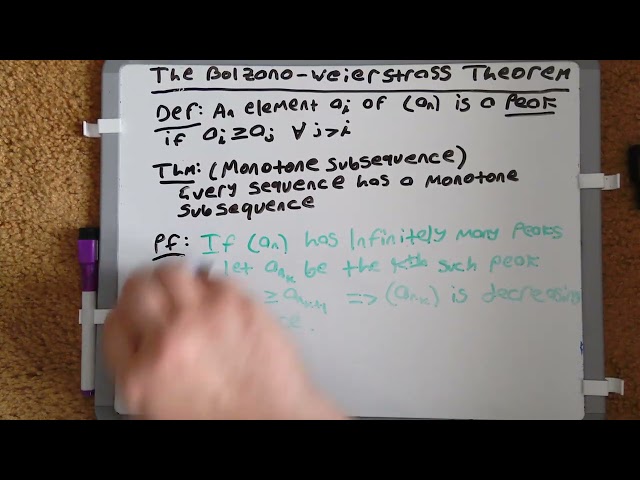 The Bolzano-Weierstrass Theorem
Def: An element aᵢ of (aₙ) is a Peak
if aᵢ ≥ aⱼ ∀ j>i
Thm: (Monotone Subsequence)
Every sequence has a Monotone
Subsequence
Pf: If (aₙ) has Infinitely Many Peaks
let aₙₖ be the kth such peak
≥ aₙₖ₊₁ => (aₙₖ) is decreasing